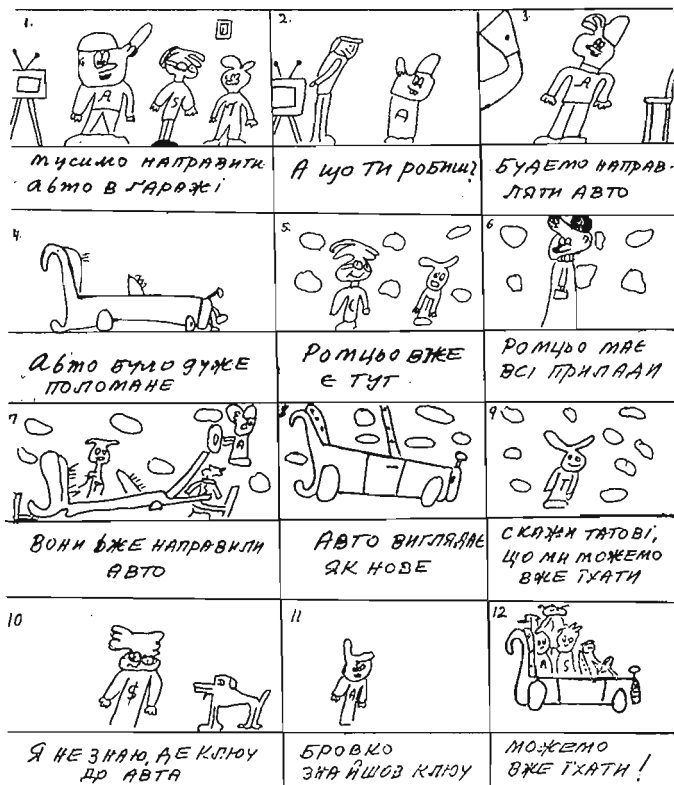 1.
A
S
T
мусимо направити
авто в ґаражі
2.
A
А ЩО ТИ РОБИШ?
3.
A
БУДЕМО НАПРАВ-
ЛЯТИ АВТО
4.
Авто було дуже
поломане
5.
РОМЦЬО ВЖЕ
Є ТУТ
6
РОМЦЬО МАЄ
ВСІ ПРИЛАДИ
7
A
ВОНИ ВЖЕ НАПРАВИЛИ
АВТО
8
АВТО ВИГЛЯДАЄ
ЯК НОВЕ
9
T
СКАЖИ ТАТОВІ,
ЩО МИ МОЖЕМО
ВЖЕ ЇХАТИ
10
$
Я НЕ ЗНАЮ, ДЕ КЛЮЧ
ДО АВТА
11
A
БРОВКО
ЗНАЙШОВ КЛЮЧ
12
A S
МОЖЕМО
ВЖЕ ЇХАТИ!